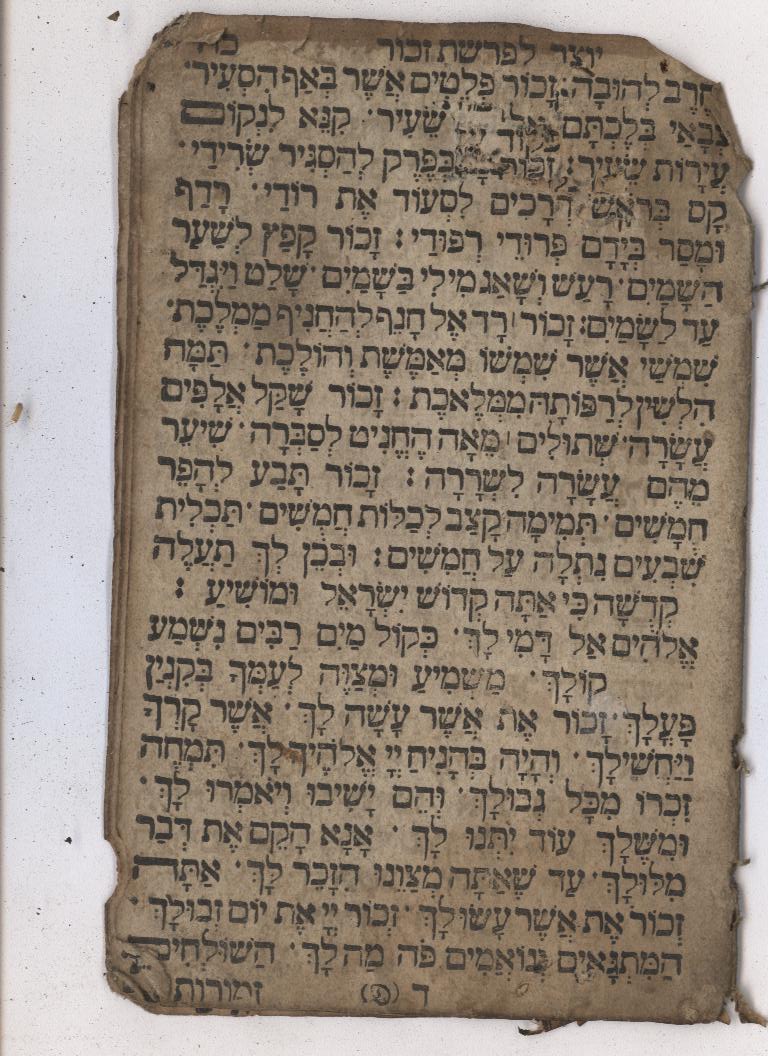 יוצר לפרשת זכור
חֶרֶב לְחוֹבָה: זָכוֹר פְּלֵטִים אֲשֶׁר בְּאַף הִסְעִיר·
בְּלֶכְתָּם שֵׂעִיר· קַנֵּא לִנְקוֹם
עֲיָרוֹת שֵׂעִיר: בְּפֶרֶק לְהַסְגִּיר שְׂרִידַי·
קָם בְּרֹאשׁ דְּרָכִים לִסְעוֹד אֶת רוֹדַי· רָדַף
וּמָסַר בְּיָדָם פְּרוּדֵי רְפוּדַי: זָכוֹר קָפַץ לְשַׁעַר
הַשָּׁמַיִם· רָעַשׁ וְשָׁאַג מִילִי בַּשָּׁמַיִם· שָׁלַט וַיִּגְדַּל
עַד לַשָּׁמָיִם: זָכוֹר רָד אֶל חָנֵף לְהַחֲנִיף מַמְלֶכֶת·
שִׁמְשַׁי אֲשֶׁר שִׁמְשׁוֹ מֵאֶמֶשׁת וְהוֹלֶכֶת· תַּמָּה
הִלְשִׁין לְרַפּוֹתָהּ מִמְּלֶאכֶת: זָכוֹר שָׁקַל אֲלָפִים
עֲשָׂרָה· שְׁתוּלִים מֵאָה הֶחֱנִיט לְסַבְּרָה· שִׁיעֵר
מֵהֶם עֲשָׂרָה לִשְׂרָרָה: זָכוֹר תָּבַע לְהָפֵר
חֲמִשִּׁים· תְּמִימָה קָצַב לְכַלּוֹת חֲמֻשִׁים· תַּכְלִית
שִׁבְעִים נִתְלָה עַל חֲמִשִּׁים: וּבְכֵן לְךָ תַעֲלֶה
קְדֻשָּׁה כִּי אַתָּה קְדוֹשׁ יִשְׂרָאֵל וּמוֹשִׁיעַ:
אֱלֹהִים אַל דֳּמִי לָךְ· כְּקוֹל מַיִם רַבִּים נִשְׁמַע
קוֹלָךְ· מַשְׁמִיעַ וּמְצַוֶּה לְעַמְּךָ בְּקִנְיַן
פָּעֳלָךְ· זָכוֹר אֶת אֲשֶׁר עָשָׂה לָךְ· אֲשֶׁר קָרְךָ
וַיַּחְשִׁילָךְ· וְהָיָה בְּהָנִיחַ יְיָ אֱלֹהֶיךָ לָךְ· תִּמְחֶה
זִכְרוֹ מִכָּל גְּבוּלָךְ· וְהֵם יָשִׁיבוּ וְיֹאמְרוּ לָךְ·
וּמִשֶּׁלָּךְ עוֹד יִתְּנוּ לָךְ· אָנָּא הָקֵם אֶת דְּבַר
מִלּוּלָךְ· עַד שֶׁאַתָּה מְצַוֵּנוּ הִזָּכֵר לָךְ· אַתָּה
זְכוֹר אֶת אֲשֶׁר עָשׂוּ לָךְ· זְכוֹר יְיָ אֶת יוֹם זְבוּלָךְ·
הַמִּתְגָּאִים וְנוֹאֲמִים פֹּה מַה לָּךְ· הַשּׁוֹלְחִים
ד (פ) זמורות